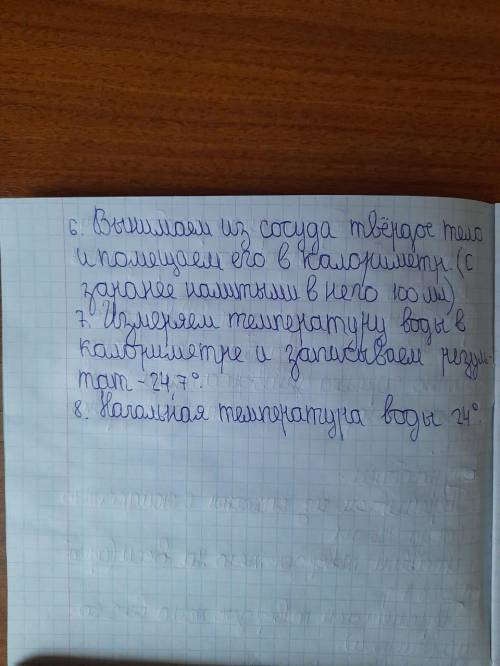 6. Вынимаем из сосуда твёрдое тело
и помещаем его в калориметр (с
заранее налитыми в него 100 мл)
7. Измеряем температуру воды в
калориметре и записываем резуль-
тат - 24,7°.
8. Начальная температура воды 24°.